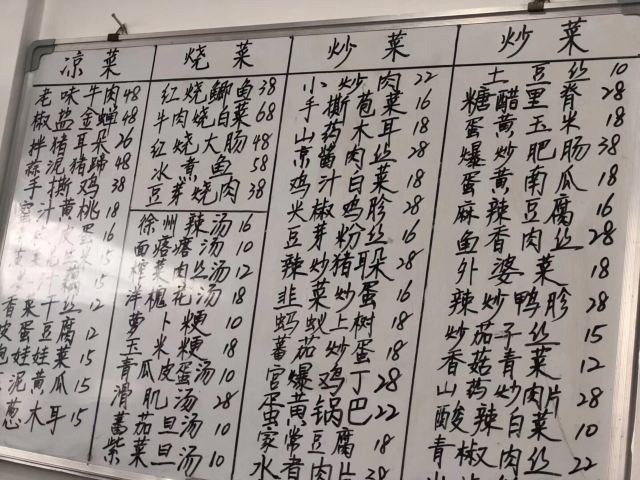 凉菜
老味牛肉 48
椒盐金蝉 48
拌猪耳朵 26
蒜泥猪蹄 48
手撕鸡 38
汁黄桃 18
蛋 16
15
藕 15
汁 12
香菜干丝 12
皮蛋豆腐 12
娃娃菜 15
泥黄瓜 15
葱木耳 15
烧菜
红烧鲫鱼 38
牛肉烧白菜 68
红烧大肠 48
水煮鱼 58
豆芽烧肉 38
徐州辣汤 16
面疙瘩汤 10
榨菜肉丝汤 12
洋槐花汤 18
萝卜粳 10
玉米粳 18
青瓜皮蛋汤 10
滑肌汤 28
蕃茄旦汤 10
紫菜旦汤 10
炒菜
小炒肉 22
手撕苞菜 16
山药木耳 18
京酱肉丝 28
鸡汁白菜 18
尖椒鸡胗 28
豆芽粉丝 16
辣炒猪耳朵 28
韭菜炒蛋 16
蚂蚁上树 18
蕃茄炒蛋 18
宫爆鸡丁 28
蛋黄锅巴 22
家常豆腐 18
水煮肉片 38
炒菜
土豆丝 10
糖醋里脊 28
蛋黄玉米 18
爆炒肥肠 38
蛋黄南瓜 18
麻辣豆腐 16
鱼香肉丝 28
外婆菜 18
辣炒鸭胗 28
炒茄子丝 15
香菇青菜 12
山药炒肉片 28
酸辣白菜 10
青椒肉丝 22